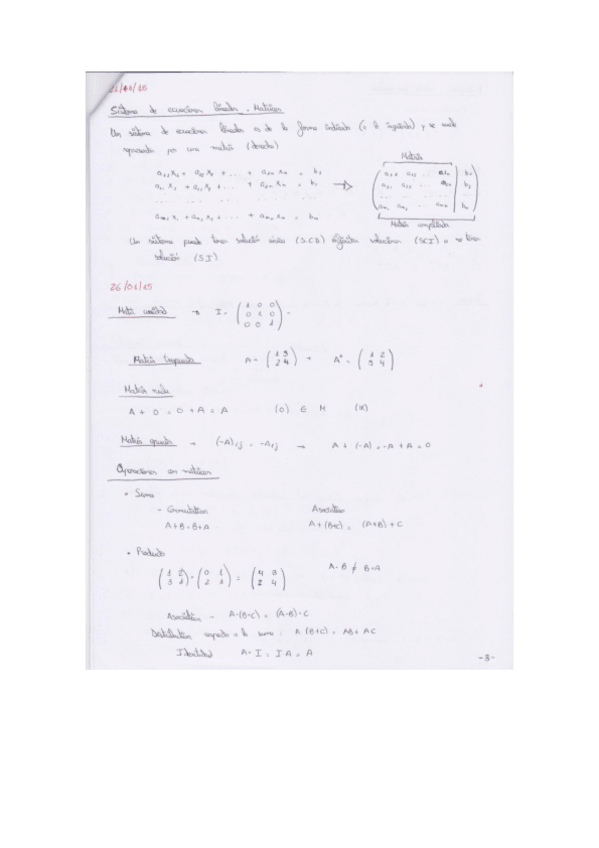 21/01/15
Sistema de ecuaciones lineales. Matrices
Un sistema de ecuaciones lineales es de la forma indicada (a la izquierda) y se puede
representar por una matriz (derecha)
Matriz
a₁₁x₁ + a₁₂x₂ + ... + a₁ₙxₙ = b₁
a₂₁x₁ + a₂₂x₂ + ... + a₂ₙxₙ = b₂
... ... ... ...
aₘ₁x₁ + aₘ₂x₂ + ... + aₘₙxₙ = bₘ
Matriz ampliada
Un sistema puede tener solución única (SCD) infinitas soluciones (SCI) o no tener
solución (SI)
26/01/15
Matriz unidad → I = (1 0 0
0 1 0
0 0 1)
Matriz traspuesta A = (1 3 → Aᵗ = (1 2
2 4) 3 4)
Matriz nula
A + 0 = 0 + A = A (0) ∈ M (K)
Matriz opuesta → (-A)ᵢⱼ = -Aᵢⱼ → A + (-A) = -A + A = 0
Operaciones con matrices
• Suma
- Conmutativa Asociativa
A+B = B+A A+(B+C) = (A+B)+C
• Producto
(1 2 · (0 1 = (4 3 A·B ≠ B·A
3 1) 2 1) 2 4)
Asociativa - A·(B·C) = (A·B)·C
Distributiva respecto a la suma: A (B+C) = AB + AC
Identidad A·I = I·A = A
-3-